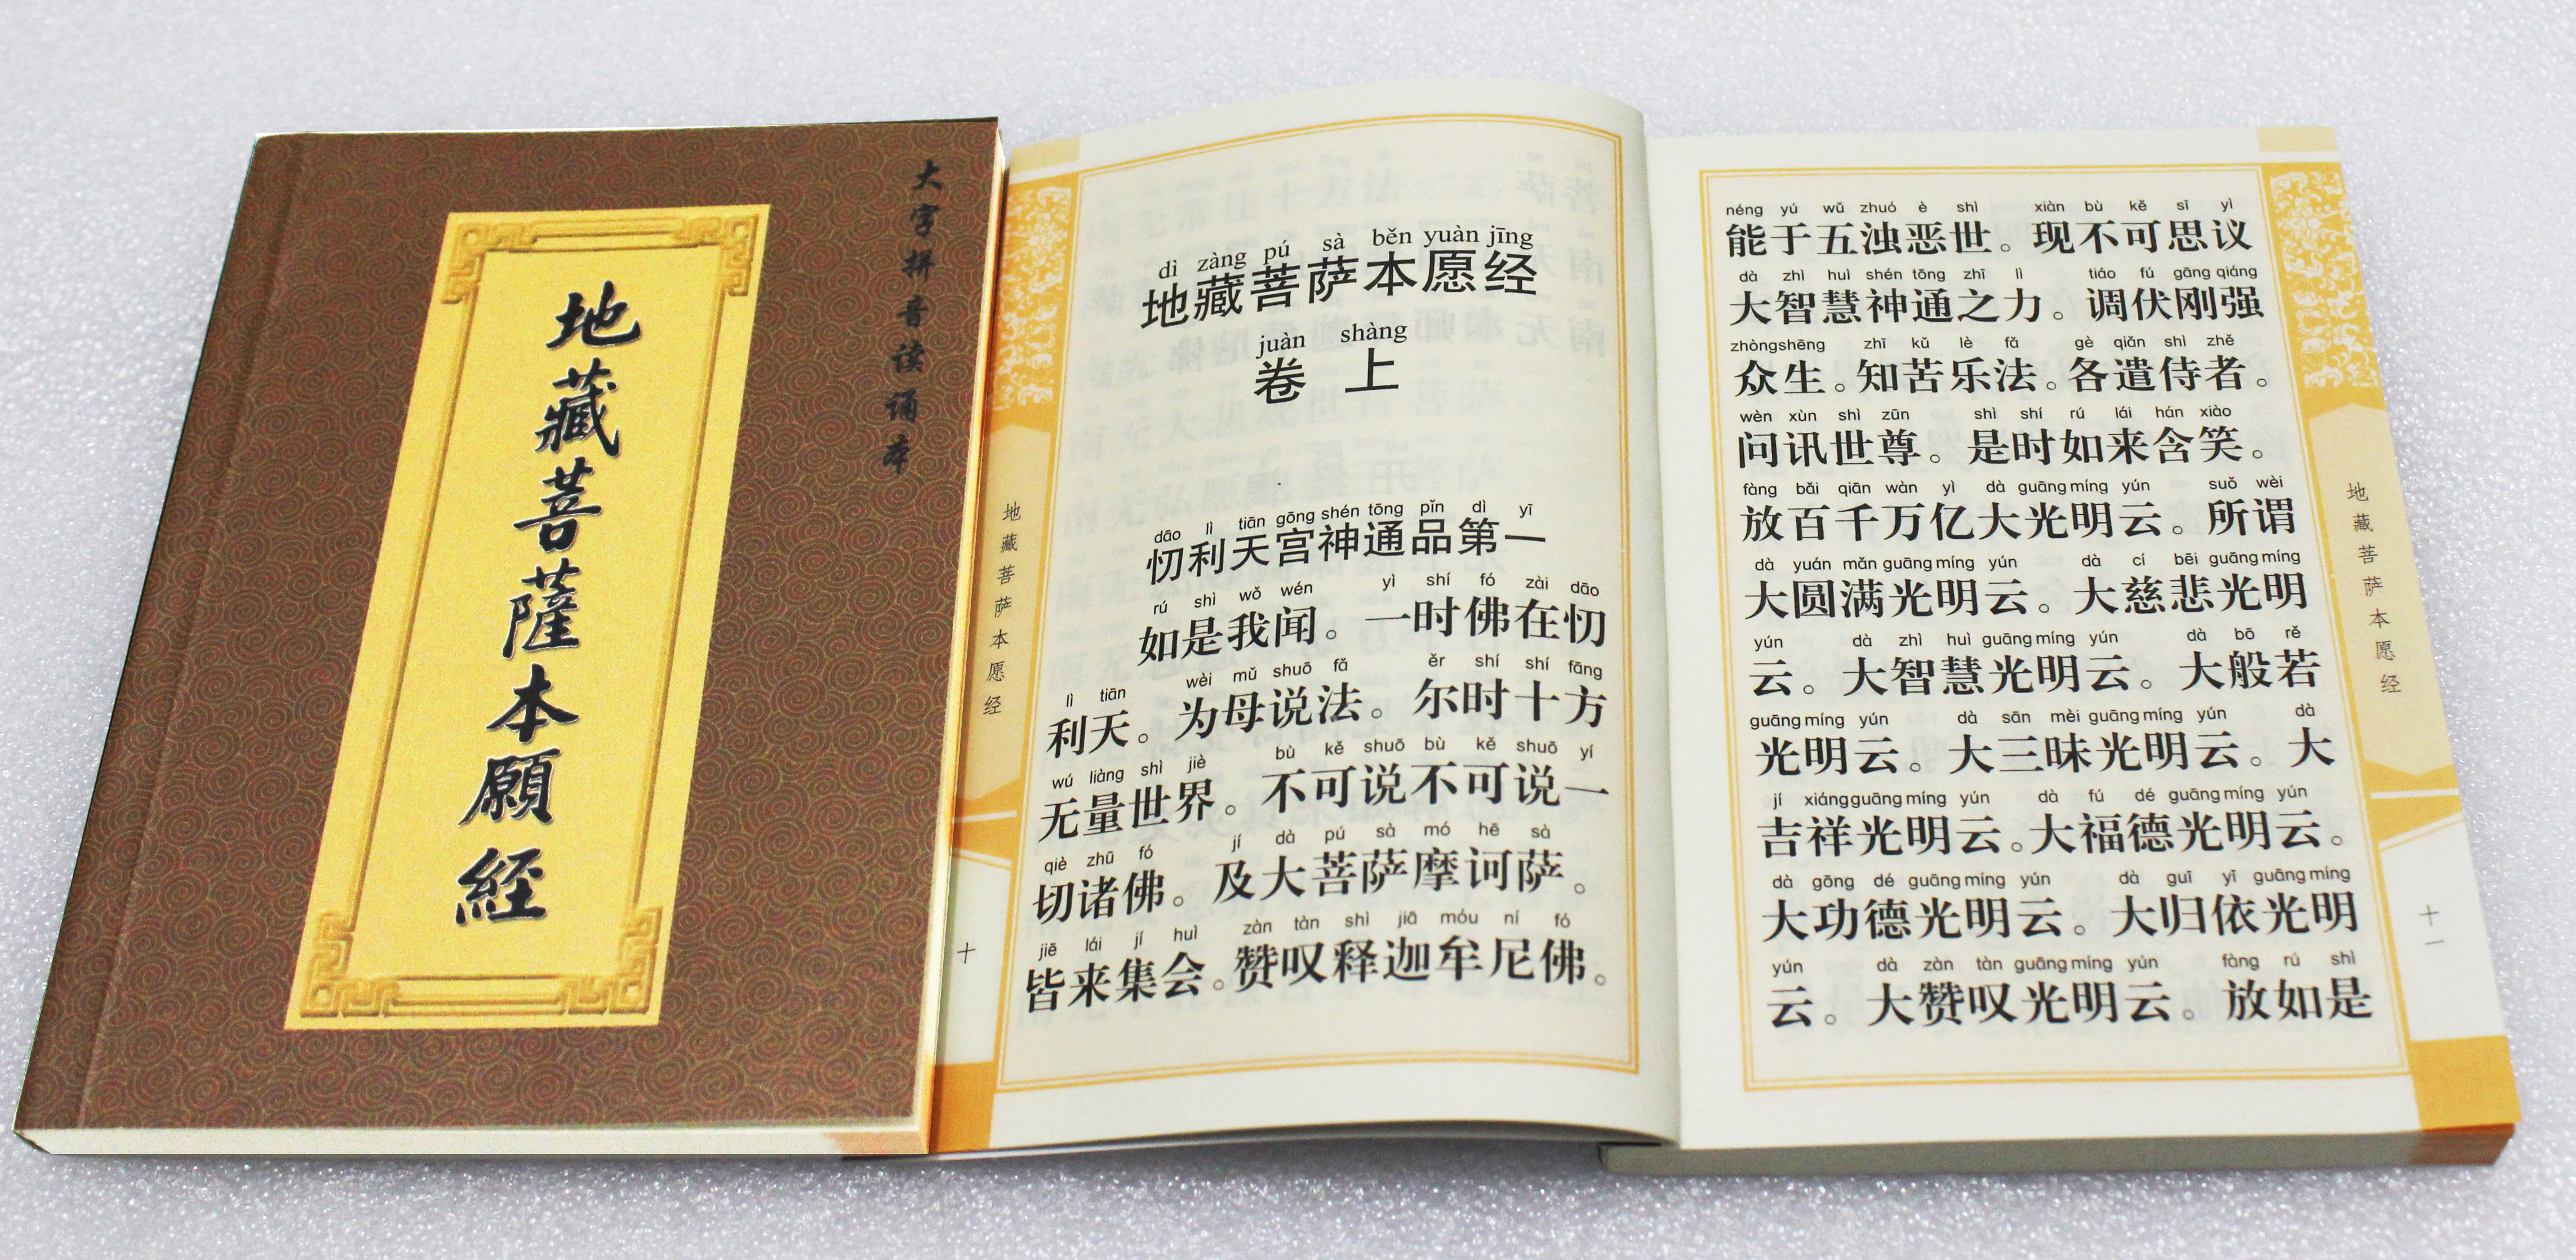 大字拼音读诵本
地藏菩薩本願經
dì zàng pú sà běn yuàn jīng
地藏菩萨本愿经
juàn shàng
卷 上
dāo lì tiān gōng shén tōng pǐn dì yī
忉利天宫神通品第一
rú shì wǒ wén yì shí fó zài dāo
如是我闻。一时佛在忉
lì tiān wèi mǔ shuō fǎ ěr shí shí fāng
利天。为母说法。尔时十方
wú liàng shì jiè bù kě shuō bù kě shuō yí
无量世界。不可说不可说一
qiè zhū fó jí dà pú sà mó hē sà
切诸佛。及大菩萨摩诃萨。
jiē lái jí huì zàn tàn shì jiā móu ní fó
皆来集会。赞叹释迦牟尼佛。
地藏菩萨本愿经
十
néng yú wǔ zhuó è shì xiàn bù kě sī yì
能于五浊恶世。现不可思议
dà zhì huì shén tōng zhī lì tiáo fú gāng qiáng
大智慧神通之力。调伏刚强
zhòng shēng zhī kǔ lè fǎ gè qiǎn shì zhě
众生。知苦乐法。各遣侍者。
wèn xùn shì zūn shì shí rú lái hán xiào
问讯世尊。是时如来含笑。
fàng bǎi qiān wàn yì dà guāng míng yún suǒ wèi
放百千万亿大光明云。所谓
dà yuán mǎn guāng míng yún dà cí bēi guāng míng
大圆满光明云。大慈悲光明
yún dà zhì huì guāng míng yún dà bō rě
云。大智慧光明云。大般若
guāng míng yún dà sān mèi guāng míng yún dà
光明云。大三昧光明云。大
jí xiáng guāng míng yún dà fú dé guāng míng yún
吉祥光明云。大福德光明云。
dà gōng dé guāng míng yún dà guī yī guāng míng
大功德光明云。大归依光明
yún dà zàn tàn guāng míng yún fàng rú shì
云。大赞叹光明云。放如是
地藏菩萨本愿经
十一